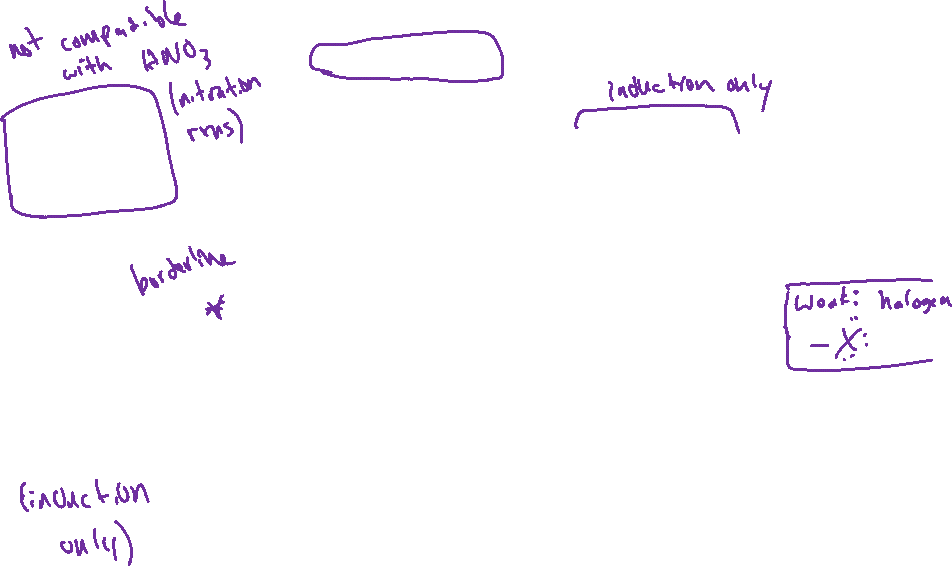 not compatible
with HNO3
(nitration
rxns)
induction only
borderline
*
Weak: halogen
–X:
(induction
only)